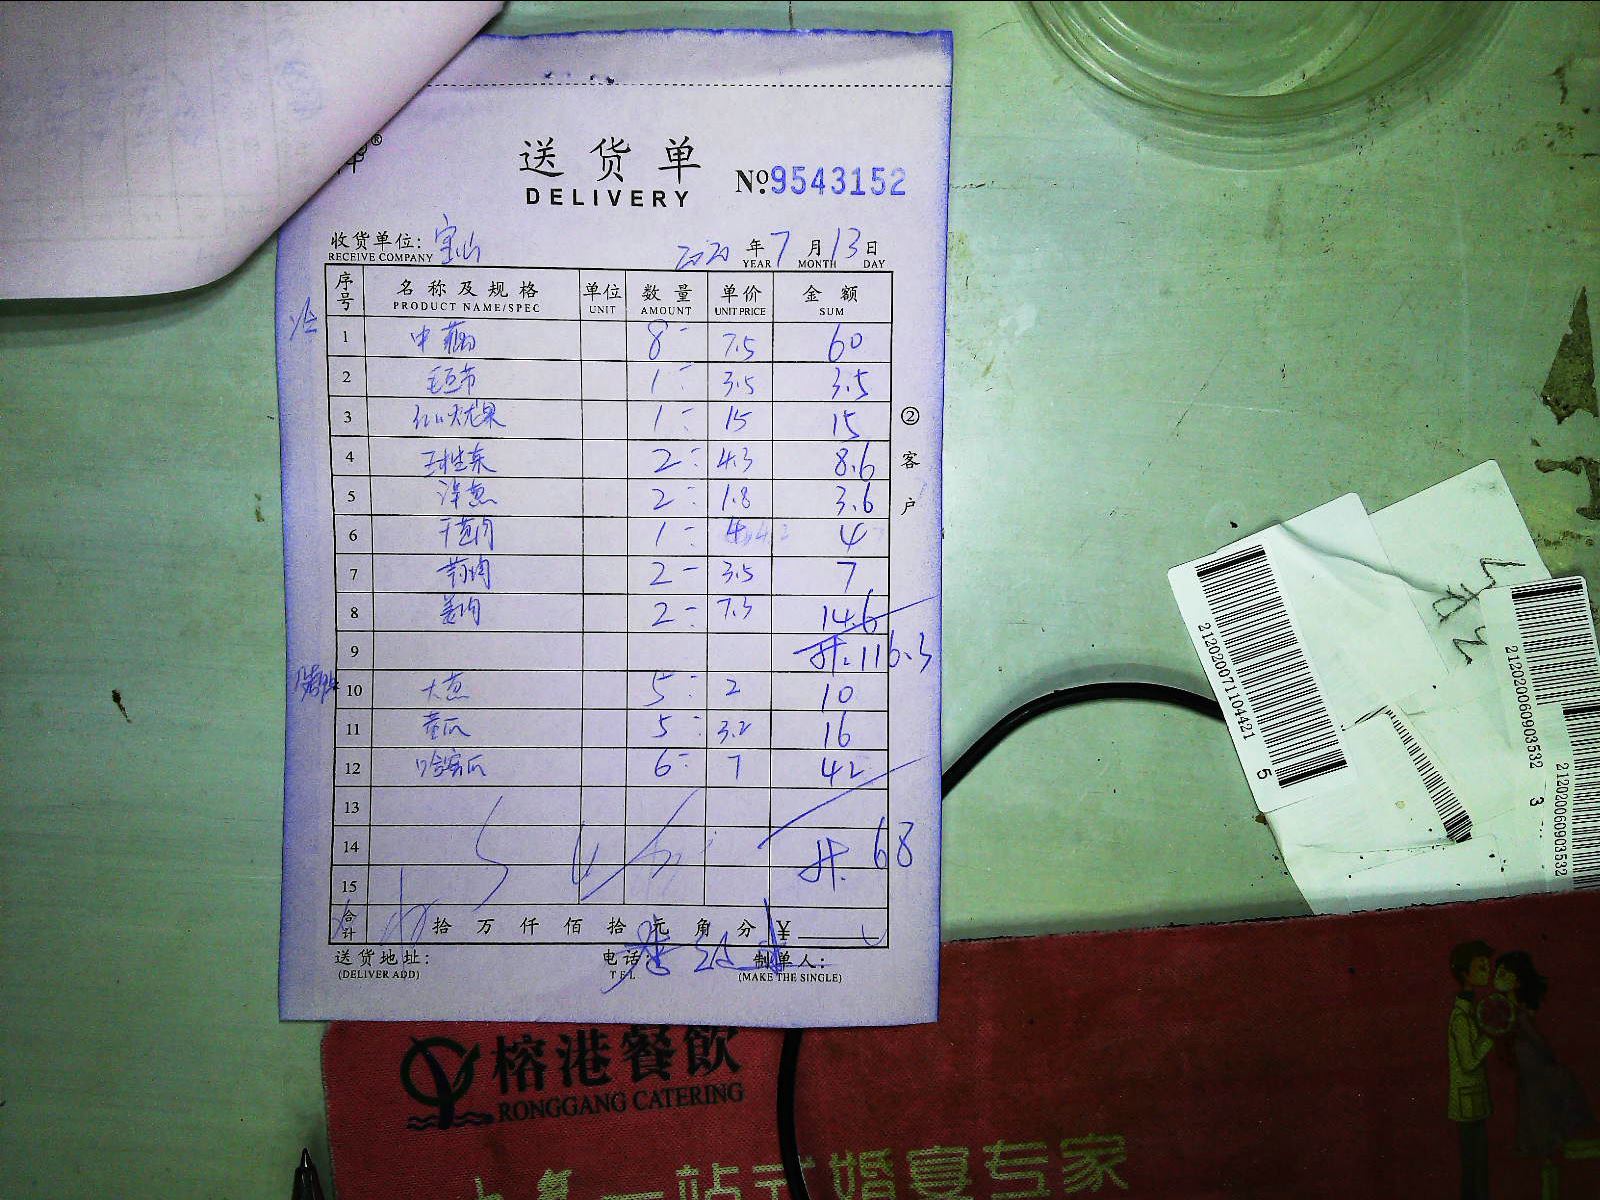 送货单
DELIVERY
№9543152
收货单位: 宝山 2020 年 7 月 13 日
RECEIVE COMPANY YEAR MONTH DAY
序号 名称及规格 单位 数量 单价 金额
PRODUCT NAME/SPEC UNIT AMOUNT UNIT PRICE SUM
1 8 7.5 60
2 1 3.5 3.5
3 红心火龙果 1 15 15
4 球生菜 2 4.3 8.6
5 洋葱 2 1.8 3.6
6 1 4 4
7 2 3.5 7
8 姜肉 2 7.3 14.6
9 计: 116.3
10 大葱 5 2 10
11 黄瓜 5 3.2 16
12 哈密瓜 6 7 42
13
14 计: 68
15
合计 拾 万 仟 佰 拾 元 角 分 ¥
送货地址: 电话: 制单人:
(DELIVER ADD) TEL (MAKE THE SINGLE)
② 客户
榕港餐飲
RONGGANG CATERING
一站式婚宴专家
212020071104421
5
212020060903532
3
212020060903532